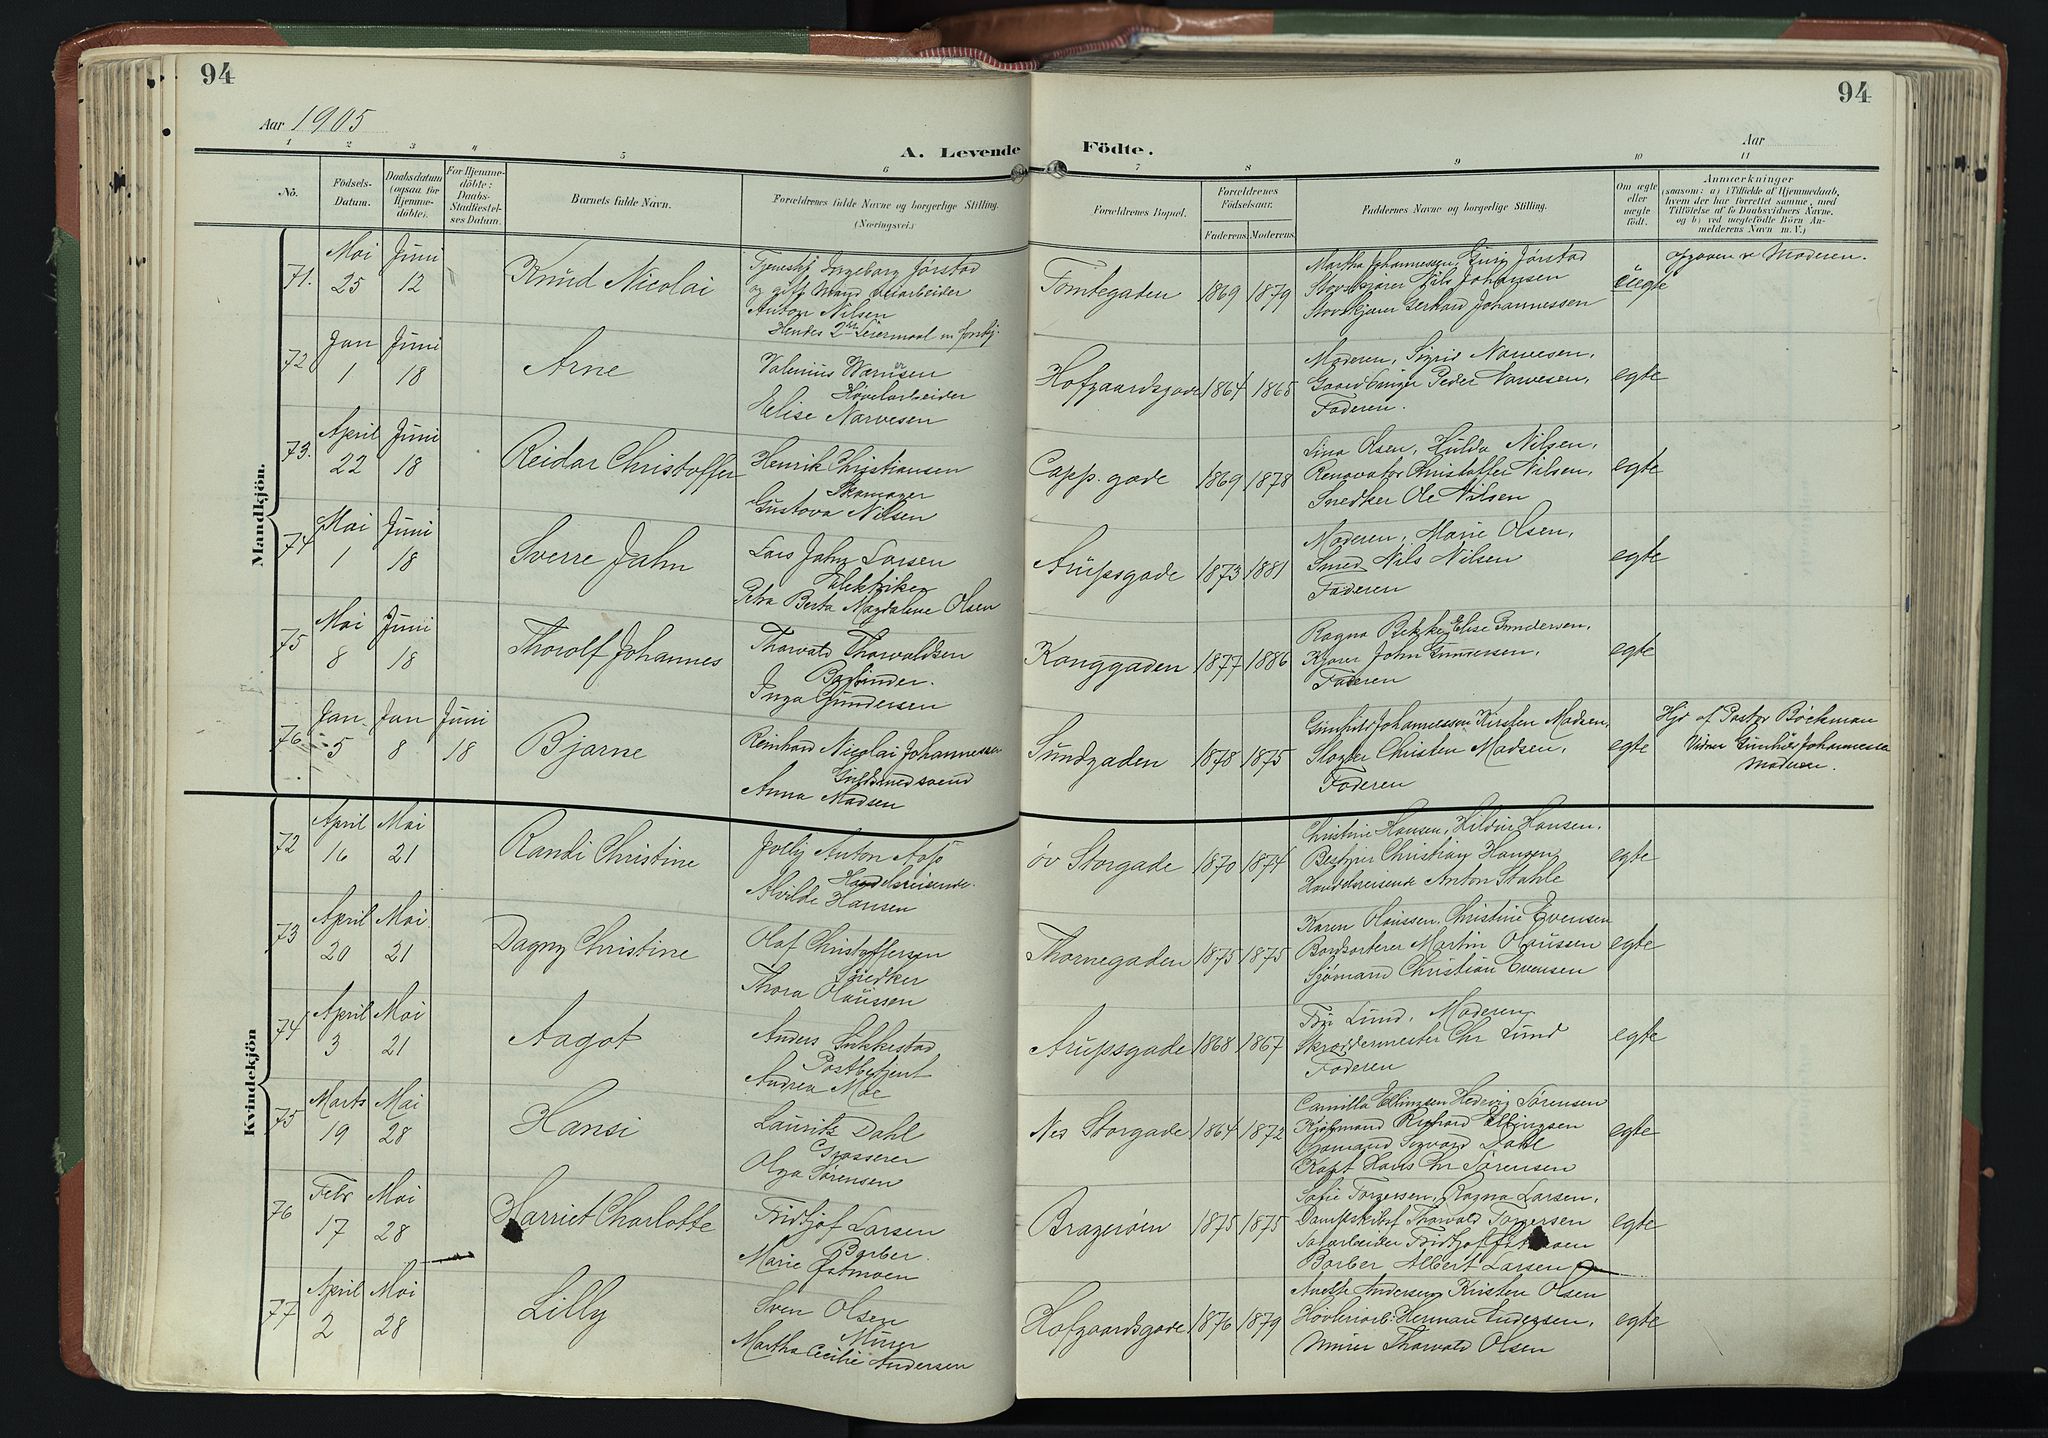 94
94
Aar 1905
Aar
A. Levende Födte.
1 2 3 4 5 6 7 8 9 10 11
Nö.
Födsels-Datum.
Daabsdatum (ogsaa för Hjemmedöbte).
For Hjemmedöbte: Daabs-Stadfæstelses Datum.
Barnets fulde Navn.
Forældrenes fulde Navne og borgerlige Stilling. (Næringsvei.)
Forældrenes Bopæl.
Forældrenes Födselsaar.
Faderens. Moderens.
Faddernes Navne og borgerlige Stilling.
Om ægte eller uægte födt.
Anmærkninger
(saasom: a) i Tilfælde af Hjemmedaab,
hvem der har forrettet samme, med
Tilföielse af to Daabsvidners Navne.
og b) ved uægtefödte Börn An-
melderens Navn m. V.)
Mandkjön.
71. Mai 25 Juni 12
Knud Nicolai
Tjenestpi Ingeborg Jørstad
og gift Mand Veiarbeider
Anton Nilsen
Hendes 2det Leiermaal m forskj.
Tomtegaden 1869 1879
Martha Johannessen, Guri Jørstad
Stovskjører Nils Johansen
Stovskjører Gerhard Johannessen
uegte
Opgaven v Moderen.
72 Jan 1 Juni 18
Arne
Valenius Warnsen
Høvelarbeider
Elise Narvesen
Hofgaardsgade 1864 1865
Moderen, Sigrid Narvesen,
Gaardbruger Peder Narvesen,
Faderen.
egte
73. April 22 Juni 18
Reidar Christoffer
Henrik Christiansen
Skomager
Gustava Nilsen
Capp. gade 1869 1878
Lina Olsen, Hulda Nilsen,
Renovatør Christoffer Nilsen,
Snedker Ole Nilsen
egte
74 Mai 1 Juni 18
Sverre Jahn
Lars Jahn Larsen
Elektriker
Petra Berta Magdalene Olsen
Arupsgade 1873 1881
Moderen, Marie Olsen,
Smed Nils Nilsen
Faderen
egte
75 Mai 8 Juni 18
Thorolf Johannes
Thorvald Thorvaldsen
Bogbinder.
Inga Gundersen
Konggaden 1877 1886
Ragna Bekke, Elise Gundersen,
Kjører John Gundersen,
Faderen
egte
76 Jan 5 Jan 8 Juni 18
Bjarne
Reinhard Nicolai Johannessen
Guldsmedsvend
Anna Madsen
Sundgaden 1878 1875
Gunhild Johannessen, Kirsten Madsen,
Slagter Christen Madsen,
Faderen
egte
Hjd af Pastor Böckman
Vidner Gunhild Johannessen
Moderen.
Kvindekjön
72 April 16 Mai 21
Randi Christine
Jolly Anton Aasø
Handelsreisende.
Alvilde Hansen
øv Storgade 1870 1874
Christine Hansen, Hildur Hansen,
Bestyrer Christian Hansen
Handelsreisende Anton Stahle
egte
73 April 20 Mai 21
Dagny Christine
Olaf Christoffersen
Snedker
Thora Olaussen
Thornegaden 1875 1875
Karen Olaussen, Christine Evensen
Bordsorterer Martin Olaussen
Sjømand Christian Evensen
egte
74 April 3 Mai 21
Aagot
Anders Sukkestad
Postbetjent
Andrea Moe
Arupsgade 1868 1867
Lund, Moderen
Skræddermester Chr Lund
Faderen
egte
75 Marts 19 Mai 28
Hansi
Lauritz Dahl
Grosserer
Olga Sørensen
Nes Storgade 1864 1872
Camilla Ellingsen Hedevig Sørensen
Kjøbmand Richard Ellingsen
Sømand Sigvard Dahl
Kapt Hans Chr Sørensen
egte
76 Febr 17 Mai 28
Harriet Charlotte
Fridtjof Larsen
Barber.
Marie Østmoen
Bragerøen 1875 1875
Sofie Torgersen, Ragna Larsen,
Dampskibsf Thorvald Torgersen
Fridtjof Østmoen
Barber Albert Larsen
egte
77 April 2 Mai 28
Lilly
Sven Olsen
Murer
Martha Cecilie Andersen
Hofgaardsgade 1876 1879
Anette Andersen, Kirsten Olsen
Høvleriarb. Herman Andersen,
Murer Thorvald Olsen
egte